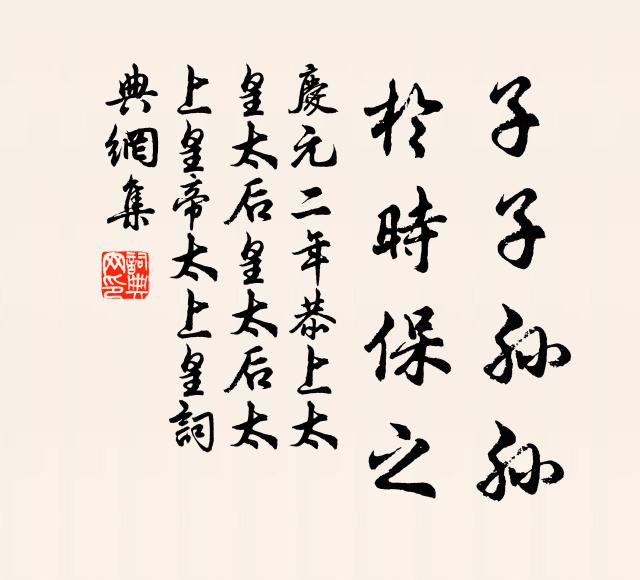 子子孙孙
於時保之
慶元二年恭上太
皇太后皇太后太
上皇帝太上皇詞
典網集
詞典網印